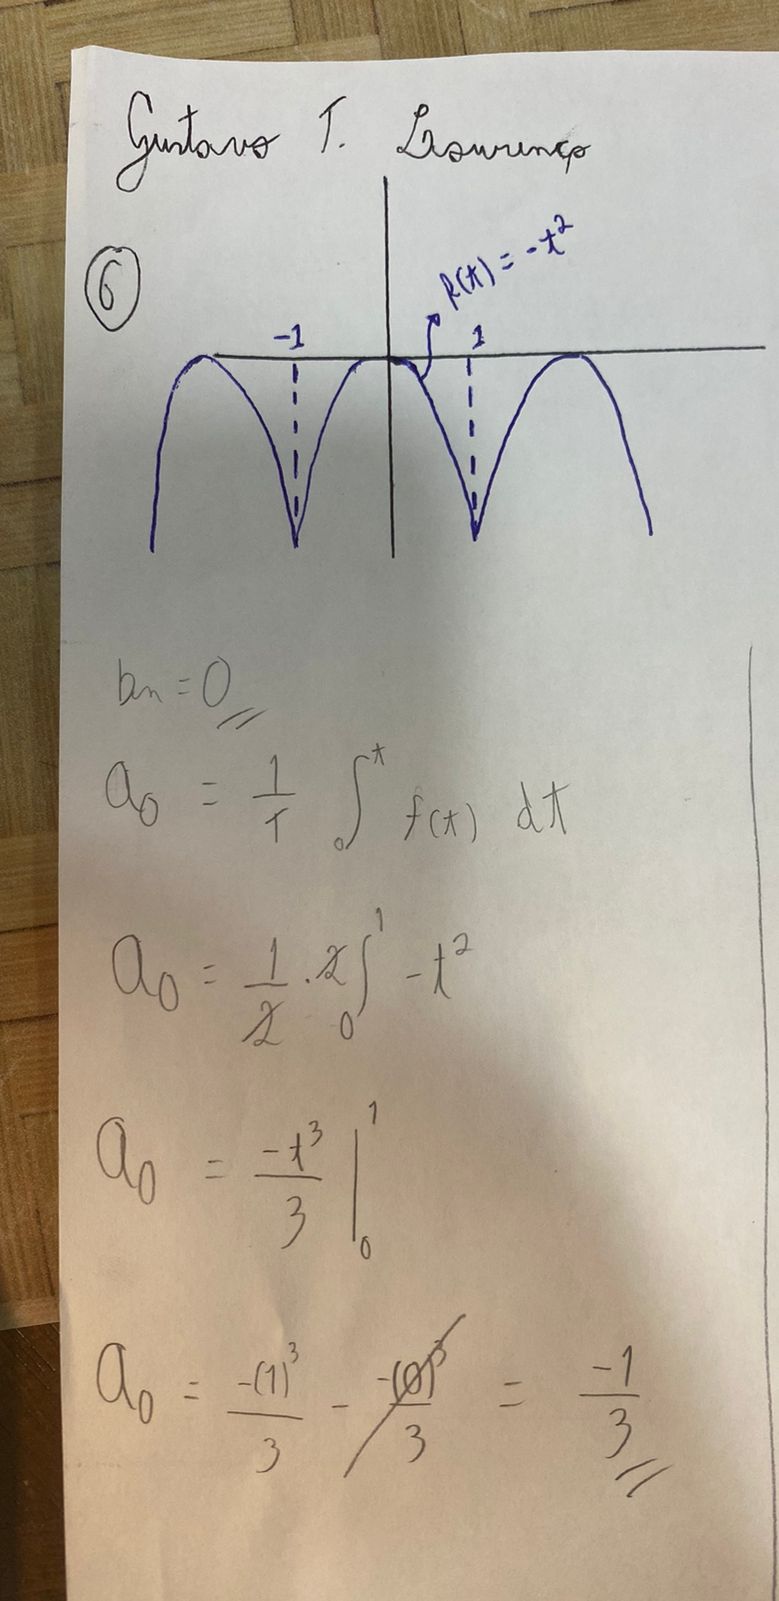 Gustavo T. Lourenço
6
R(t) = -t²
-1 1
bn = 0
a0 = 1/T ∫0^t f(t) dt
a0 = 1/2 . 2 ∫0^1 -t²
a0 = -t³/3 |0^1
a0 = -(1)³/3 - -(0)³/3 = -1/3